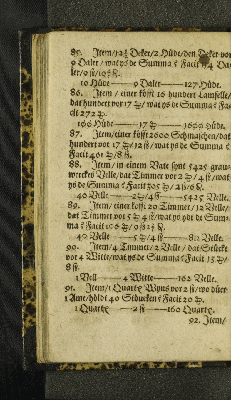 85. Item/12¾ Deker/2 Hüde/den Deker vor
9 Daler/wat ys de Summa? Facit 114 Da-
ler/9 ß/
10 Hüde — 9 Daler — 127 Hüde.
86. Item/einer köfft 16 hundert Lamfelle/
dat hundert vor 17 /wat ys de Summa? Fa-
cit 272
100 Hüde — 17 — 1600 Hüde.
87. Item/einer köfft 2600 Schmaschen/dat
hundert vor 17 /12 ß/wat ys de Summa?
Facit 461 /8 ß.
88. Item/in einem Vate synt 5425 grau-
werckes Velle/dat Timmer vor 2 /4 ß/wat
ys de Summa? Facit 305 /2 ß/6
40 Velle — 2 /4 ß — 5425 Velle.
89. Item/einer köfft 20 Timmer/12 Velle/
dat Timmer vor 5 /4 ß/wat ys de Sum-
ma? Facit 106 /9 ß
40 Velle — 5 /4 ß — 812 Velle.
90. Item/4 Timmer/2 Velle/dat Stücke
vor 4 Witte/wat ys de Summa? Facit 13
8 ß.
1 Vell — 4 Witte — 162 Velle.
91. Item/1 Quarte Wyns vor 2 ß/wo düer
1 Ame/holdt 40 Stöucken? Facit 20
1 Quarte — 2 ß — 160 Quarte.
92. Item/